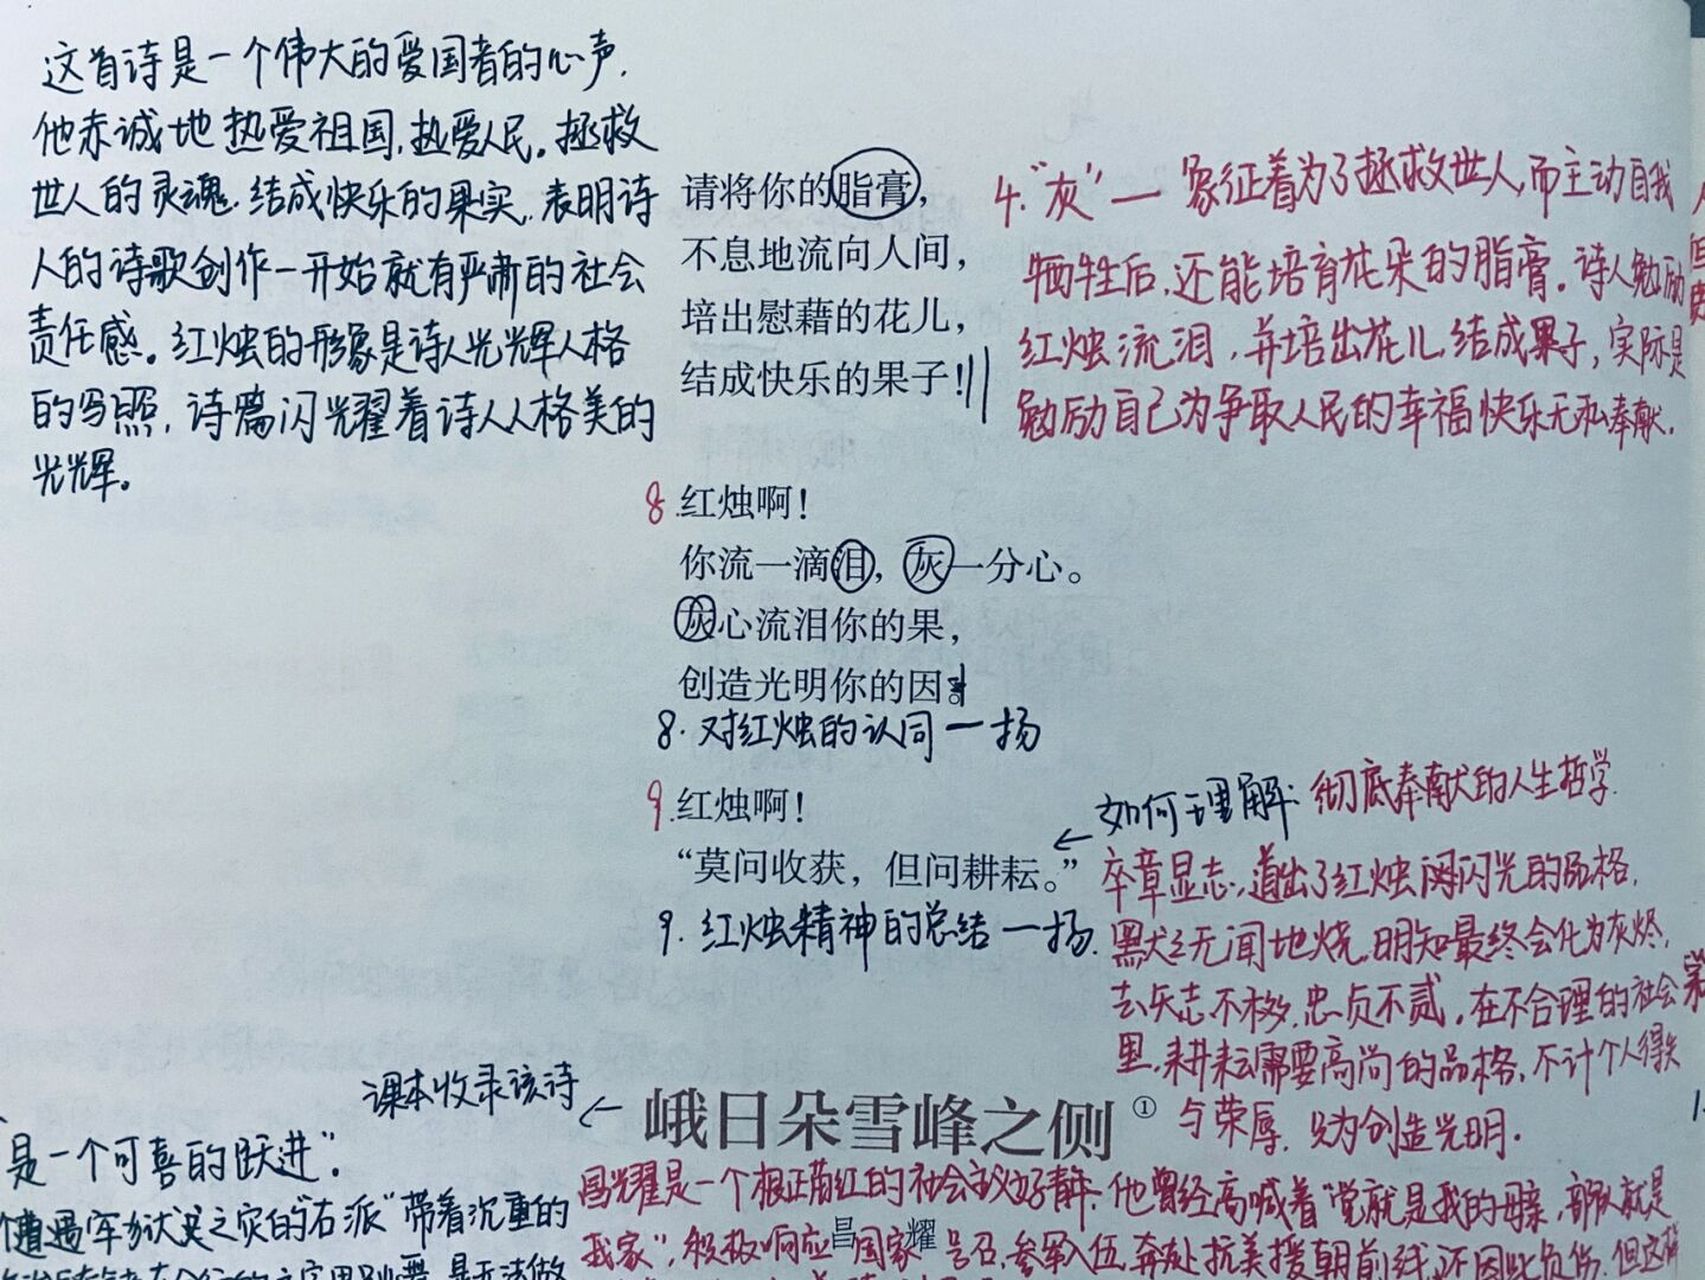 这首诗是一个伟大的爱国者的心声.
他赤诚地热爱祖国,热爱人民。拯救
世人的灵魂.结成快乐的果实.表明诗
人的诗歌创作一开始就有严肃的社会
责任感。红烛的形象是诗人光辉人格
的写照,诗篇闪光耀着诗人人格美的
光辉。
请将你的脂膏,
不息地流向人间,
培出慰藉的花儿,
结成快乐的果子!
4."灰"一象征着为了拯救世人,而主动自我
牺牲后,还能培育花朵的脂膏。诗人勉励
红烛流泪,并培出花儿.结成果子,实际是
勉励自己为争取人民的幸福快乐无私奉献.
8.红烛啊!
你流一滴泪,灰一分心。
灰心流泪你的果,
创造光明你的因。
8.对红烛的认同一扬
9.红烛啊!
“莫问收获,但问耕耘。”
9.红烛精神的总结一扬.
←如何理解:彻底奉献的人生哲学.
卒章显志,道出了红烛闪光的品格.
默默无闻地烧.明知最终会化为灰烬,
去矢志不移.忠贞不贰.在不合理的社会
里.耕耘需要高尚的品格,不计个人得失
与荣辱.只为创造光明.
课本收录该诗←
峨日朵雪峰之侧①
是一个可喜的跃进".
遭遇牢狱之灾的"右派"带着沉重的
昌耀是一个根正苗红的社会主义好青年.他曾经高喊着"党就是我的母亲,部队就是
我家",积极响应国家号召,参军入伍,奔赴抗美援朝前线,还因此负伤.但这样
昌 耀